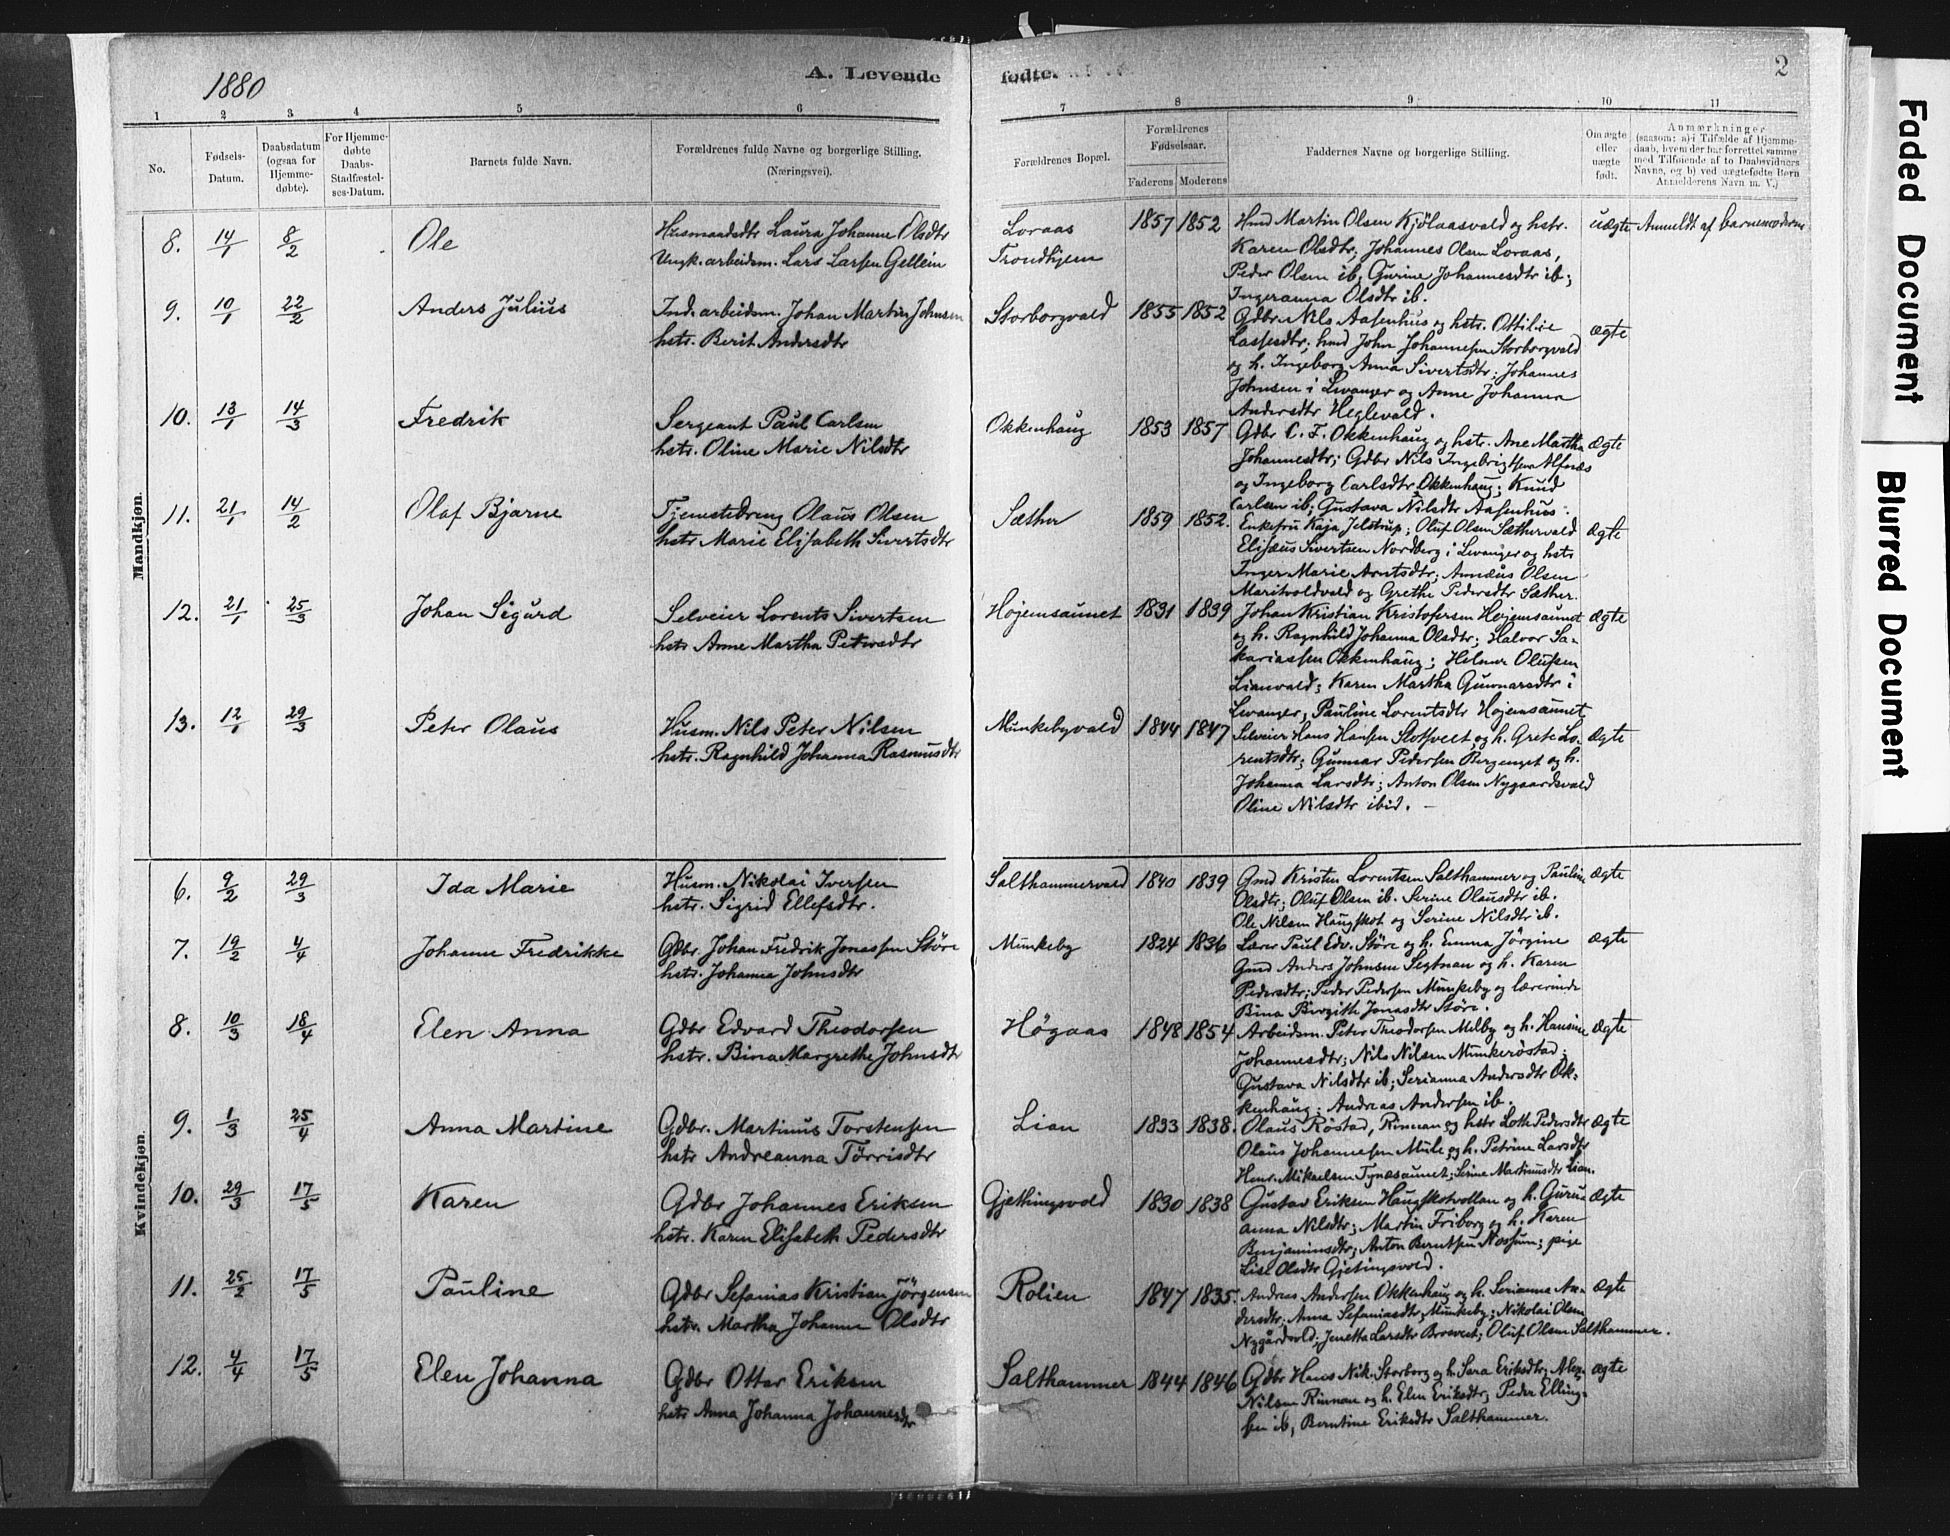 1880
A. Levende
fødte.
2
1 2 3 4 5 6 7 8 9 10 11
No.
Fødsels-Datum.
Daabsdatum (ogsaa for Hjemme-døbte).
For Hjemme-døbte Daabs-Stadfæstel-ses-Datum.
Barnets fulde Navn.
Forældrenes fulde Navne og borgerlige Stilling.
(Næringsvei).
Forældrenes Bopæl.
Forældrenes Fødselsaar.
Faderens Moderens
Faddernes Navne og borgerlige Stilling.
Om ægte eller uægte født.
Anmærkninger
(saasom: a) i Tilfælde af Hjemme-
daab, hvem der har forrettet samme
med Tilføiende af to Daabsvidners
Navne, og b) ved uægtefødte Børn
Anmelderens Navn m. V.)
Mandkjøn.
8. 14/1 8/2 Ole
Husmandsdtr Laura Johanne Olsdtr
Ungk. arbeidsm. Lars Larsen Gellein
Loraas
Trondhjem
1857 1852
Hmd Martin Olsen Kjölaasvald og hstr.
Karen Olsdtr; Johannes Olsen Loraas,
Peder Olsen ib; Gurine Johannesdtr ib;
Ingeranna Olsdtr ib.
uægte Anmeldt af barnemoderen
9. 10/1 22/2 Anders Julius
Ind. arbeidsm. Johan Martin Johnsen
hstr. Berit Andersdtr
Storborgvald 1855 1852
Gdbr. Nils Aasenhus og hstr. Ottilie
Lassesdtr; hmd John Johannesen Storborgvald
og h. Ingeborg Anna Sivertsdtr; Johannes
Johnsen i Levanger og Anne Johanna
Andersdtr Heglevald.
ægte
10. 13/1 14/3 Fredrik
Sergeant Paul Carlsen
hstr. Oline Marie Nilsdtr
Okkenhaug 1853 1857
Gdbr C. F. Okkenhaug og hstr. Ane Martha
Johannesdtr; Gdbr Nils Ingebrigtsen Alfnæs
og Ingeborg Carlsdtr Okkenhaug; Knud
Carlsen ib; Gustava Nilsdtr Aasenhus.
ægte
11. 21/1 14/2 Olaf Bjarne
Tjenestedreng Olaus Olsen
hstr Marie Elisabeth Sivertsdtr
Sæther 1859 1852.
Enkefru Kaja Jelstrup; Oluf Olsen Sæthervald
Elisæus Sivertsen Nordberg i Levanger og hstr
Inger Marie Arntsdtr; Annæus Olsen
Maritvoldvald og Grethe Pedersdtr Sæther.
ægte
12. 21/1 25/3 Johan Sigurd
Selveier Lorents Sivertsen
hstr Anne Martha Petersdtr
Højemsaunet 1831 1839
Johan Kristian Kristofersen Højemsaunet
og h. Ragnhild Johanna Olsdtr; Halvor Sa-
kariassen Okkenhaug; Helmer Olufsen
Lianvald; Karen Martha Gunnarsdtr i
Levanger, Pauline Lorentsdtr Højemsaunet
ægte
13. 12/1 29/3 Peter Olaus
Husm. Nils Peter Nilsen
hstr. Ragnhild Johanna Rasmusdtr
Munkebyvald 1844 1847
Selveier Hans Hansen Slotsveet og h. Grete Lo-
rentsdtr; Gunnar Pedersen Bergenget og h.
Johanna Larsdtr; Anton Olsen Nygaardsvald
Oline Nilsdtr ibid. —
ægte
Kvindekjøn.
6. 9/2 29/3 Ida Marie
Husm. Nikolai Iversen
hstr. Sigrid Ellefsdtr.
Salthammervald 1840 1839
Gmd Kristen Lorentsen Salthammer og Pauline
Olsdtr; Oluf Olsen ib. Serine Olausdtr ib.
Ole Nilsen Haugskot og Serine Nilsdtr ib.
ægte
7. 19/2 4/4 Johanne Fredrikke
Gdbr. Johan Fredrik Jonassen Störe
hstr. Johanna Johnsdtr
Munkeby 1824 1836
Lærer Paul Edv. Störe og h. Emma Jörgine
Gmd Anders Johnsen Segtnan og h. Karen
Pedersdtr; Peder Pedersen Munkeby og lærerinde
Bina Birgith Jonasdtr Störe.
ægte
8. 10/3 18/4 Elen Anna
Gdbr Edvard Theodorsen
hstr. Bina Margrethe Johnsdtr
Høgaas 1848 1854
Arbeidsm. Peter Theodorsen Melby og h. Hansine
Johannesdtr; Nils Nilsen Munkeröstad;
Gustava Nilsdtr ib; Serianna Andersdtr Ok-
kenhaug; Andreas Andersen ib.
ægte
9. 1/3 25/4 Anna Martine
Gdbr. Martinus Torstensen
hstr Andreanna Törrisdtr
Lian 1833 1838.
Olaus Röstad, Rinnan og hstr Loth Pedersdtr
Olaus Johannesen Mule og h. Petrine Larsdtr
Henr. Mikaelsen Tynæsaunet; Serine Martinusdtr Lian.
ægte
10. 29/3 17/5 Karen
Gdbr Johannes Eriksen
hstr. Karen Elisabeth Pedersdtr
Gjethingsvold 1830 1838
Gustav Eriksen Haugskotvollan og h. Guru-
anna Nilsdtr; Martin Friborg og h. Karen
Benjaminsdtr; Anton Berntsen Nossum; pige
Lise Olsdtr Gjetingsvold.
ægte
11. 25/2 17/5 Pauline
Gdbr Sefanias Kristian Jörgensen
hstr. Martha Johanne Olsdtr
Rolien 1847 1835.
Andreas Andersen Okkenhaug og h. Serianna An-
dersdtr; Anna Sefaniasdtr Munkeby; Nikolai Olsen
Nygårdsvold; Jenetta Larsdtr Broveet; Oluf Olsen Salthammer.
ægte
12. 4/4 17/5 Elen Johanna
Gdbr Ottar Eriksen
hstr Anna Johanna Johannesdtr
Salthammer 1844 1846
Gdbr Hans Nik. Storborg og h. Sara Eriksdtr; Alex.
Nilsen Rinnan og h. Elen Eriksdtr; Peder Elling-
sen ib, Berntine Eriksdtr Salthammer.
ægte
Faded Document
Blurred Document